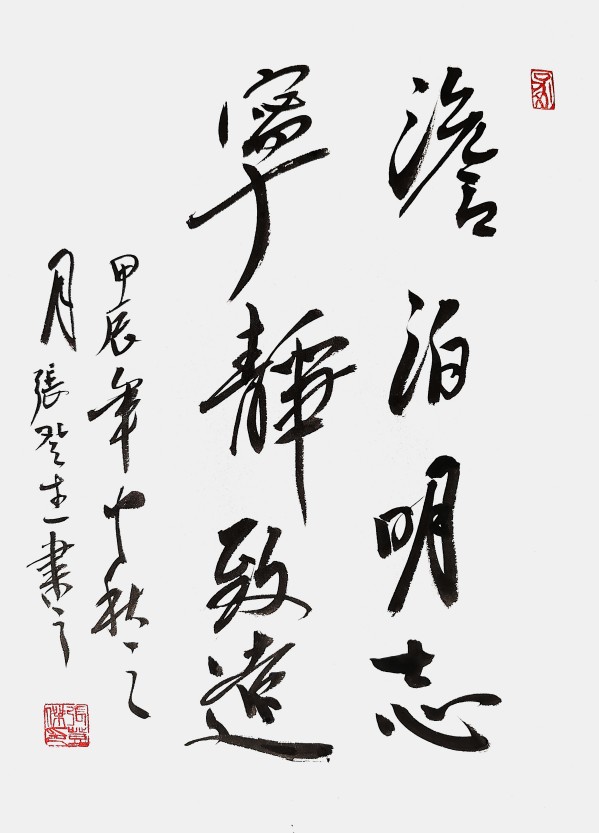 澹泊明志
寧靜致遠
甲辰年中秋之
月張登生書